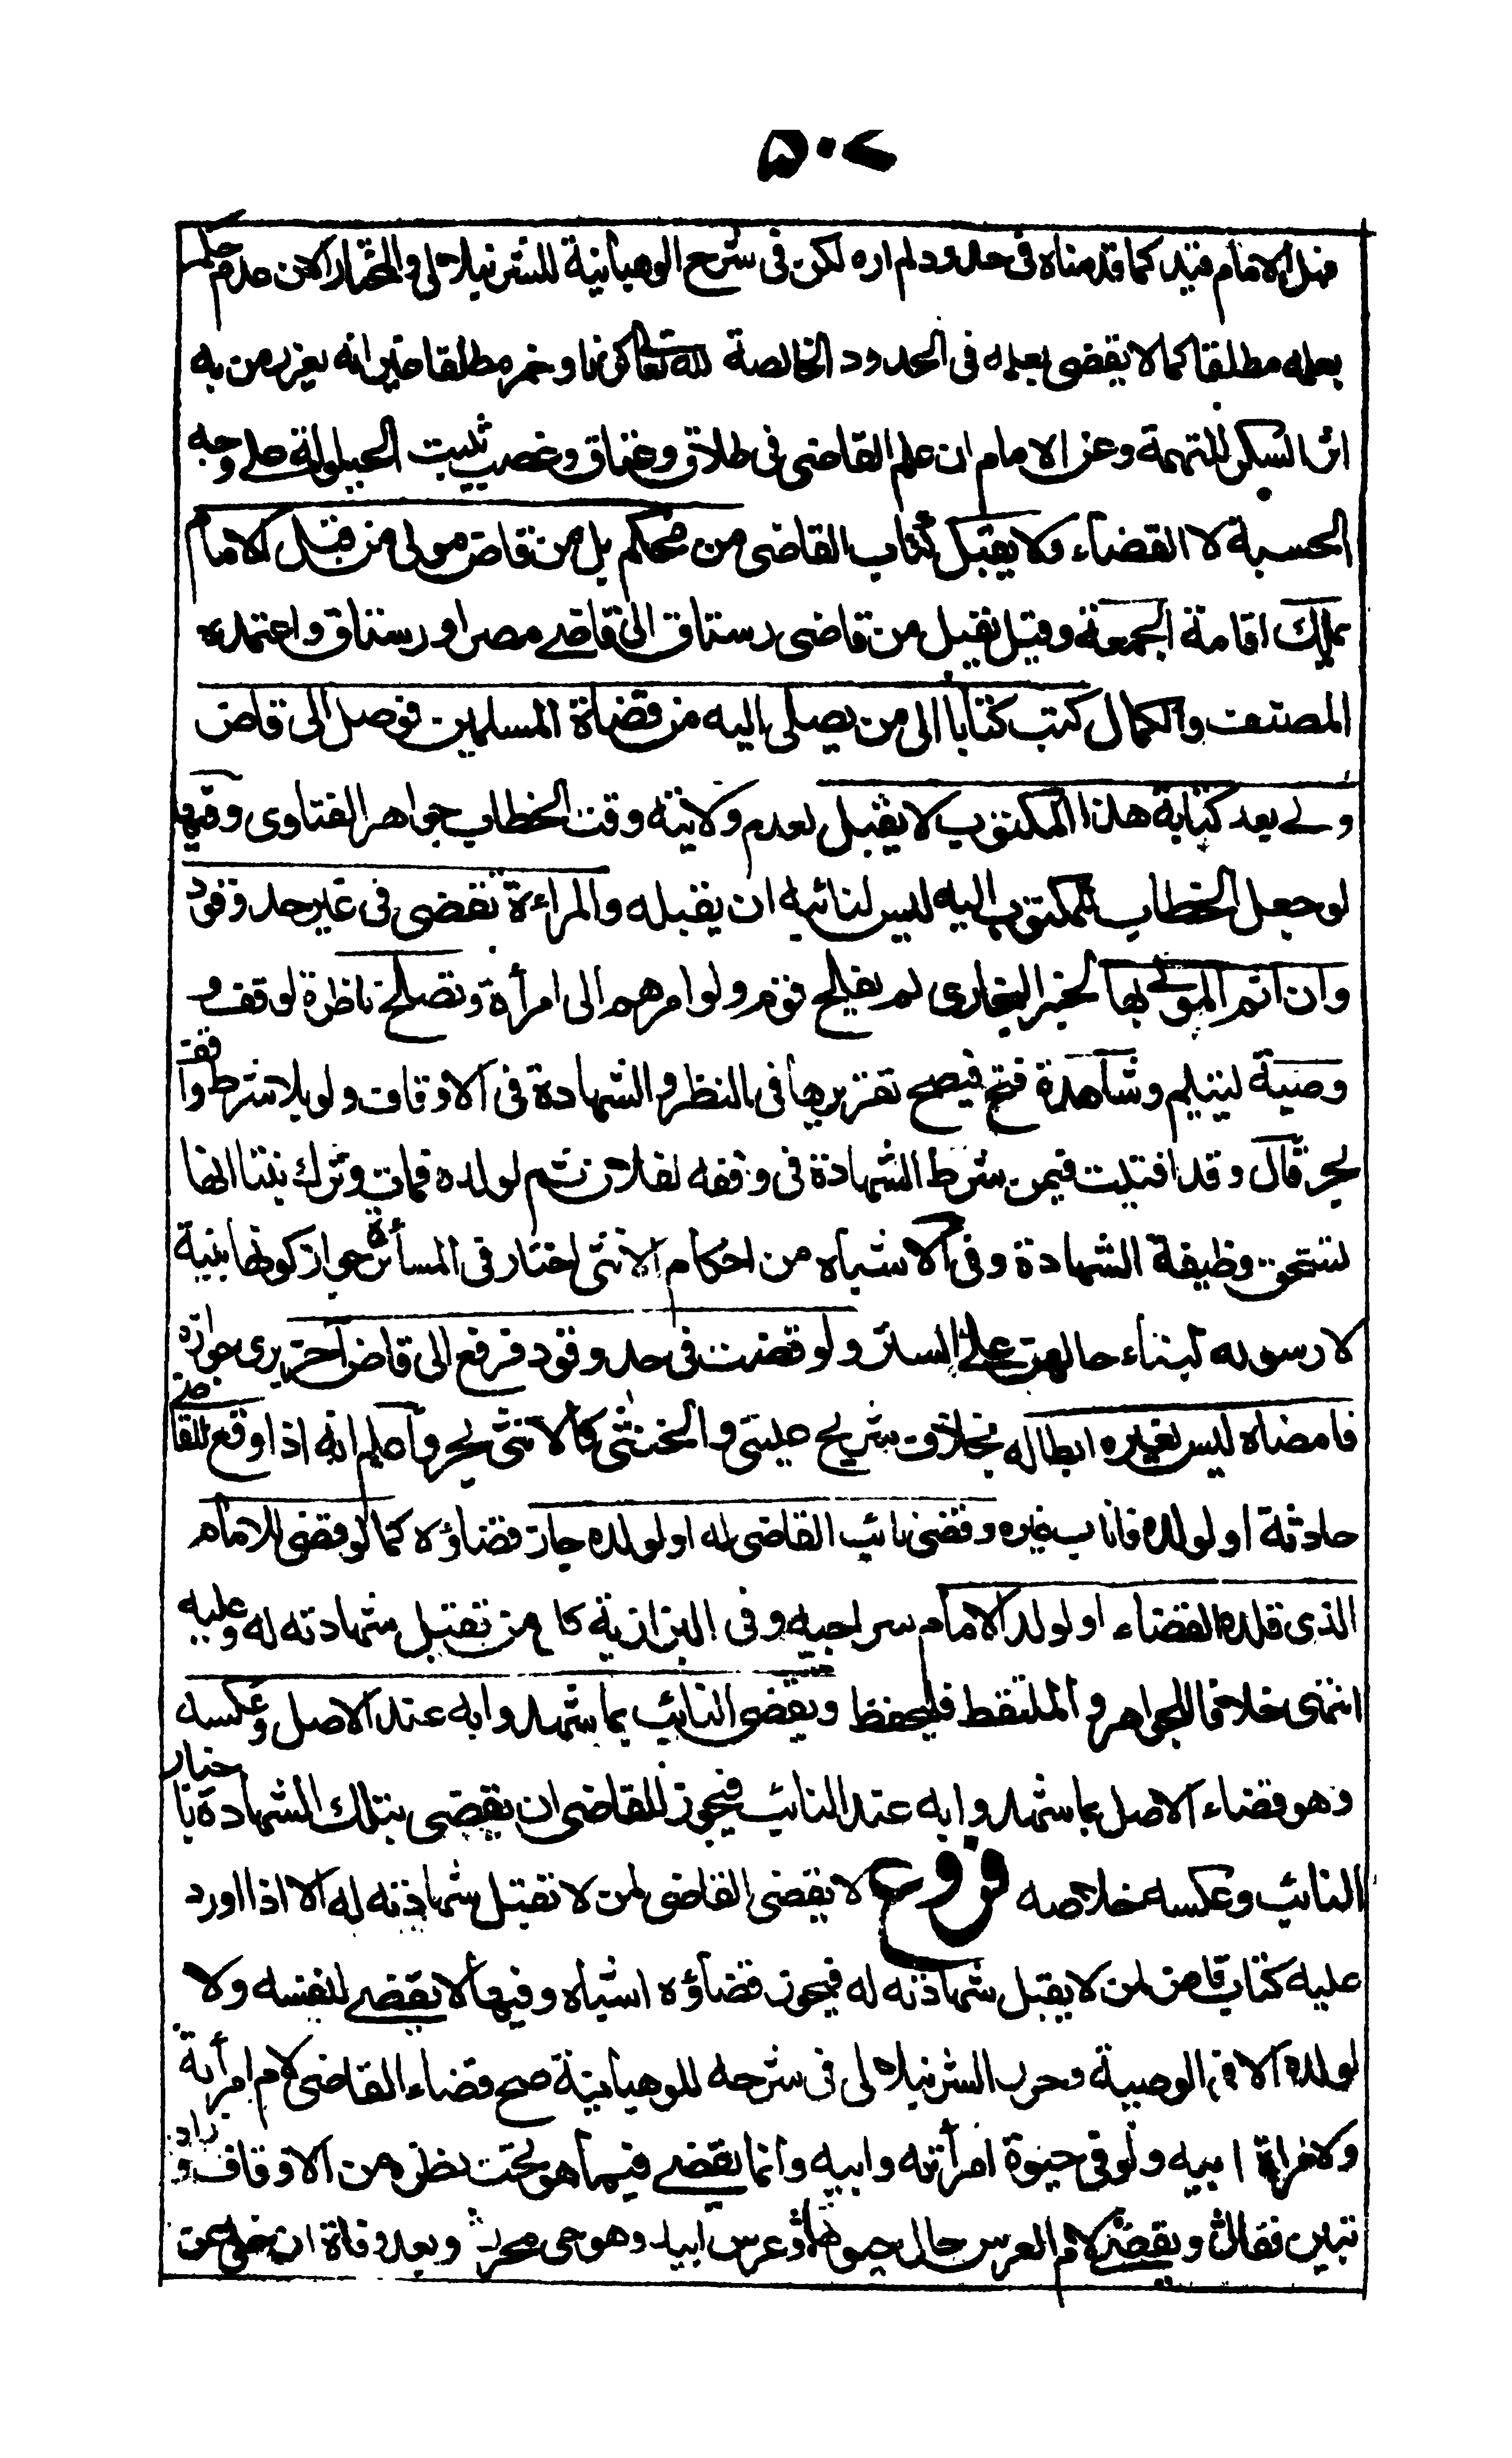 ۵۰۷
فهل الامام قيد كما قدمناه فى حدود لم اره لكن فى شرح الوهبانية للشرنبلالى والمختار الان عدم حكمه
بعلمه مطلقا كما لا يقضى بعلمه فى الحدود الخالصة لله تعالى كزنا وخمر مطلقا غير انه يعزر من به
اثر السكر للتهمة وعن الامام ان علم القاضى فى طلاق وعتاق وغصب يثبت الحيلولة على وجه
الحسبة لا القضاء ولا يقبل كتاب القاضى من محكم بل من قاض مولى من قبل الامام
يملك اقامة الجمعة وقيل يقبل من قاضى رستاق الى قاضى مصر او رستاق واعتمده
المصنف والكمال كتب كتابا الى من يصلى اليه من قضاة المسلمين فوصل الى قاض
ولى بعد كتابة هذا المكتوب لا يقبل لعدم ولايته وقت الخطاب جواهر الفتاوى وفيها
لو جعل الخطاب للمكتوب اليه ليس لنائبه ان يقبله والمراءة تقضى فى غير حد وقود
وان اثم المولى لها لخبر البخارى لم يفلح قوم ولوا امرهم الى امرأة وتصلح ناظرة لوقف و
وصية ليتيم وشاهدة فتح فيصح تقريرها فى النظر والشهادة فى الاوقاف ولو بلا شرط واقف
بحر قال وقد افتيت فيمن شرط الشهادة فى وقفه لفلان ثم لولده فمات وترك بنتا انها
تستحق وظيفة الشهادة وفى الاشباه من احكام الانثى اختار فى المسائرة جواز كونها نبية
لا رسوله لبناء حالهن على الستر ولو قضت فى حد وقود فرفع الى قاض آخر يرى جوازه
فامضاه ليس لغيره ابطاله بخلاف شريح عينى والخنثى كالانثى بحر واعلم انه اذا وقع للقاضى
حادثة او لولده فاناب غيره وقضى نائب القاضى له او لولده جاز قضاؤه كما لو قضى للامام
الذى قلده القضاء او لولد الامام سراجيه وفى البزازية كل من تقبل شهادته له وعليه
انتهى خلافا للجواهر والملتقط فليحفظ ويقضى النائب بما شهدوا به عند الاصل وعكسه
وهو قضاء الاصل بما شهدوا به عند النائب فيجوز للقاضى ان يقضى بتلك الشهادة باخبار
النائب وعكسه خلاصه فروع لا يقضى القاضى لمن لا تقبل شهادته له الا اذا اورد
عليه كتاب قاض لمن لا يقبل شهادته له فيجوز قضاؤه اشباه وفيها لا يقضى لنفسه ولا
لولده الا فى الوصية وحرر الشرنبلالى فى شرحه للوهبانية صح قضاء القاضى لام امرأته
ولامرأة ابيه ولو فى حيوة امرأته وابيه وانما يقضى فيما هو تحت نظره من الاوقاف وزاد
بيتين فقال ويقضى لام العرس حال حيوتها وعرس ابيه وهو حى محرر وبعد وفاة ان خلى عن